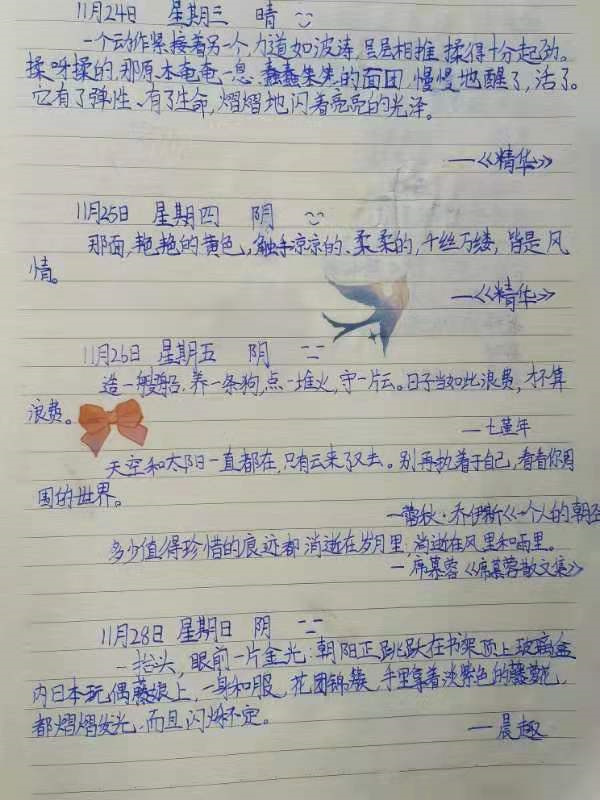 11月24日 星期三 晴
一个动作紧接着另一个,力道如波涛,层层相推,揉得十分起劲。
揉呀揉的,那原本奄奄一息、蠢蠢朱朱的面团,慢慢地醒了,活了。
它有了弹性、有了生命,熠熠地闪着亮亮的光泽。
——《精华》
11月25日 星期四 阴
那面,艳艳的黄色,触手凉凉的、柔柔的,千丝万缕,皆是风
情。
——《精华》
11月26日 星期五 阴
造一艘船,养一条狗,点一堆火,守一片云。日子当如此浪费,才不算
浪费。
——七堇年
天空和太阳一直都在,只有云来了又去。别再执着于自己,看看你周
围的世界。
——蕾秋·乔伊斯《一个人的朝圣
多少值得珍惜的痕迹都消逝在岁月里,消逝在风里和雨里。
——席慕蓉《席慕蓉散文集》
11月28日 星期日 阴
一抬头,眼前一片金光:朝阳正跳跃在书架顶上玻璃盒
内日本玩偶藤娘上,一身和服,花团锦簇,手里拿着淡紫色的藤萝花,
都熠熠发光,而且闪烁不定。
——晨趣